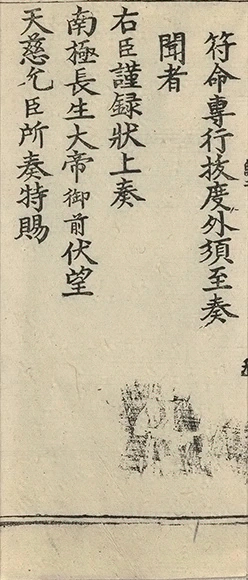 符命專行拔度外須至奏
聞者
右臣謹録狀上奏
南極長生大帝御前伏望
天慈允臣所奏特賜